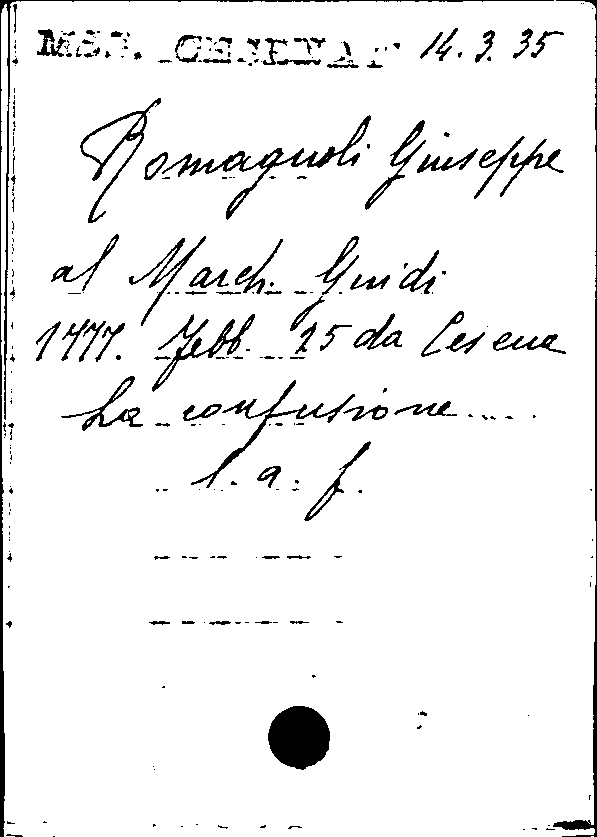 MSS. CESENAT 14.3.35
Romagnoli Giuseppe
al March. Guidi
1777. Febb. 25 da Cesena
La confusione....
l. a. f.